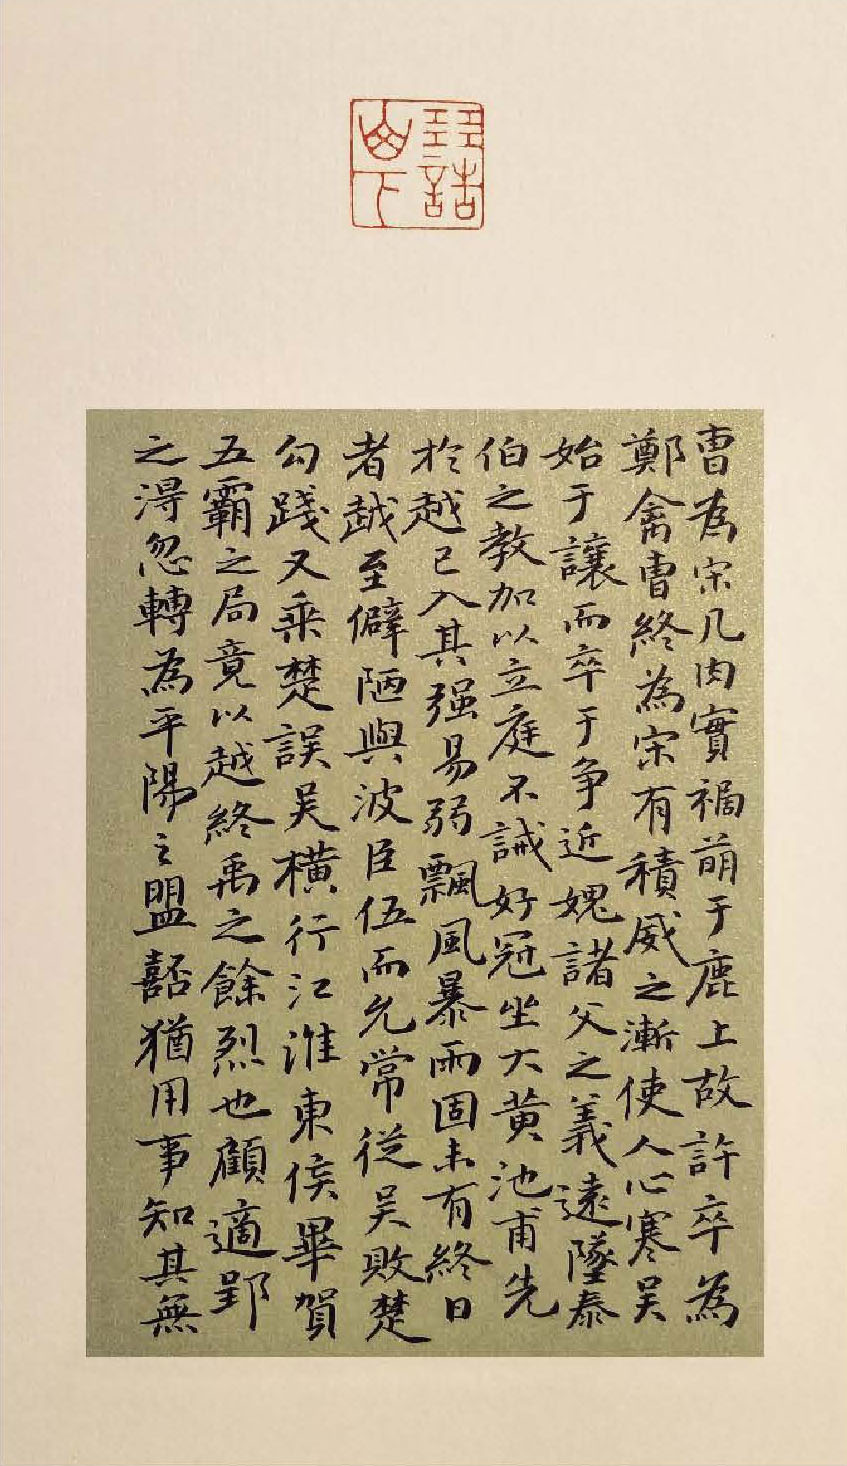 曹為宋几肉實禍萌于鹿上故許卒為
鄭禽曹終為宋有積威之漸使人心寒吴
始于讓而卒于争近媿諸父之義遠墜泰
伯之教加以立庭不誡好冠坐大黄池甫先
於越已入其强易弱飄風暴雨固未有終日
者越至僻陋與波臣伍而允常從吴敗楚
勾踐又乘楚誤吴橫行江淮東侯畢賀
五霸之局竟以越終禹之餘烈也顧適郢
之淂忽轉為平陽之盟嚭猶用事知其無